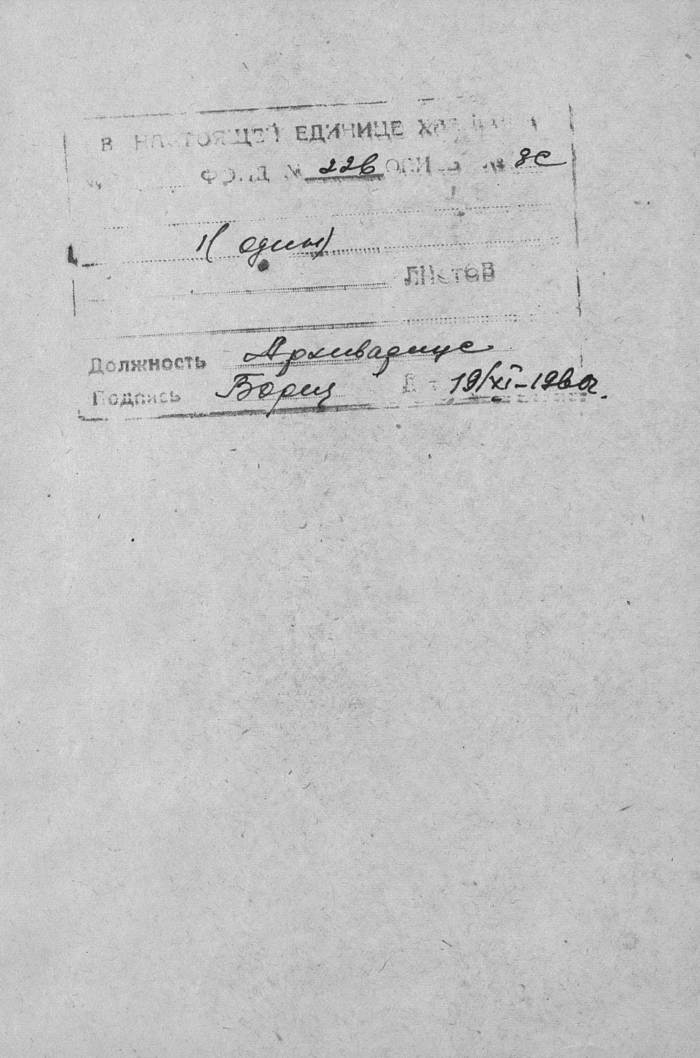 В НАСТОЯЩЕЙ ЕДИНИЦЕ
ФОНД № 226 ОПИСЬ № 8С
1( один)
ЛИСТОВ
Должность Архивариус
Подпись
19/XI-1960г.